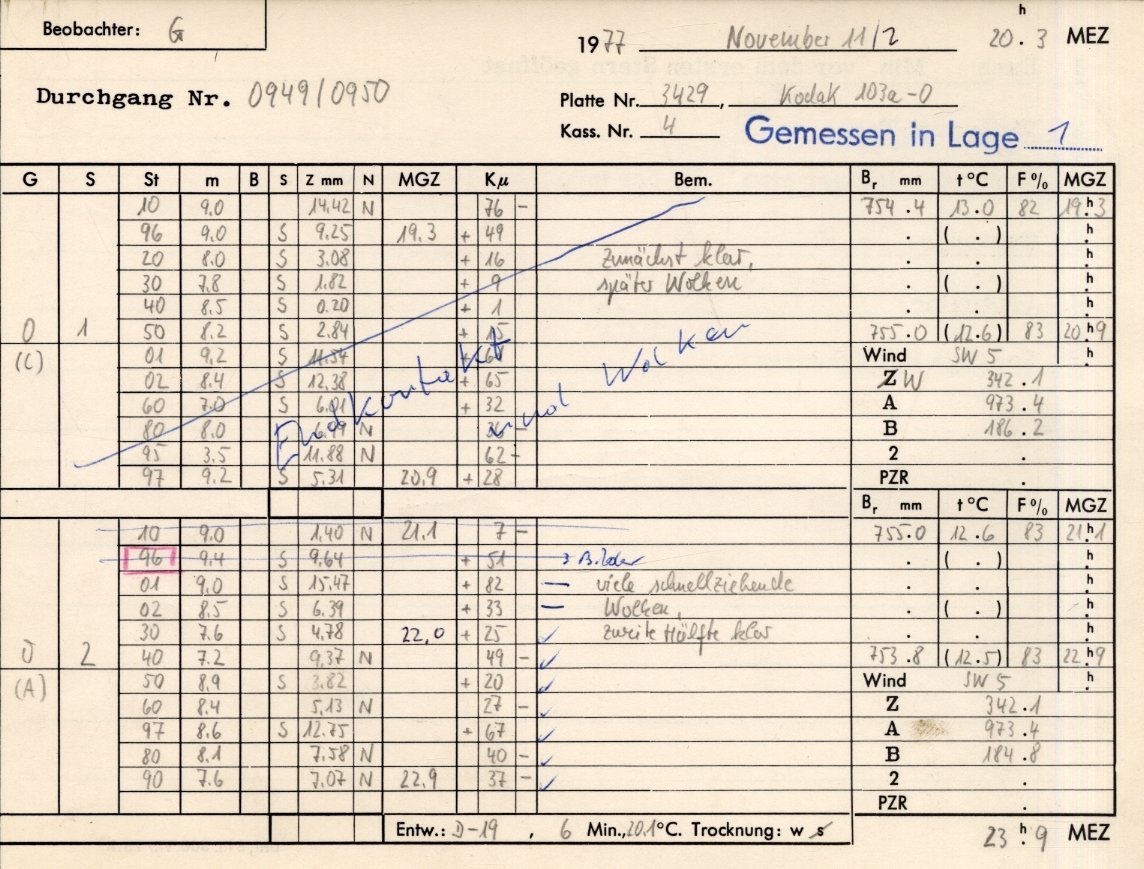 Beobachter: G
1977 November 11/2 20.h3 MEZ
Durchgang Nr. 0949/0950
Platte Nr. 3429, Kodak 103a-O
Kass. Nr. 4 Gemessen in Lage 1
G S St m B S Z mm N MGZ Kμ Bem. Br mm t°C F% MGZ
10 9.0 14.42 N 76 - 754.4 13.0 82 19.h3
96 9.0 S 9.25 19.3 + 49 . ( . ) h
20 8.0 S 3.08 + 16 Zunächst klar, . . h
30 7.8 S 1.82 + 9 später Wolken . ( . ) h
40 8.5 S 0.20 + 1 . . h
0 1 50 8.2 S 2.84 + 15 755.0 (12.6) 83 20.h9
(C) 01 9.2 S 11.54 + 61 Wind SW 5 h
02 8.4 S 12.38 + 65 Z W 342.1
60 7.0 S 6.01 + 32 A 973.4
80 8.0 6.79 N 36 - B 186.2
95 3.5 11.88 N 62 - 2 .
97 9.2 S 5.31 20.9 + 28 PZR .
Endkontakt und Wolken
Br mm t°C F% MGZ
10 9.0 1.40 N 21.1 7 - 755.0 12.6 83 21.h1
96 9.4 S 9.64 + 51 3 Bilder . ( . ) h
01 9.0 S 15.47 + 82 — viele schnellziehende . . h
02 8.5 S 6.39 + 33 — Wolken, . ( . ) h
30 7.6 S 4.78 22,0 + 25 ✓ zweite Hälfte klar . . h
2 40 7.2 9.37 N 49 - ✓ 753.8 (12.5) 83 22.h9
(A) 50 8.9 S 3.82 + 20 ✓ Wind SW 5 h
60 8.4 5.13 N 27 - ✓ Z 342.1
97 8.6 S 12.75 + 67 ✓ A 973.4
80 8.1 7.58 N 40 - ✓ B 184.8
90 7.6 7.07 N 22.9 37 - ✓ 2 .
PZR .
Entw.: D-19, 6 Min., 20.1°C. Trocknung: w s
23.h9 MEZ